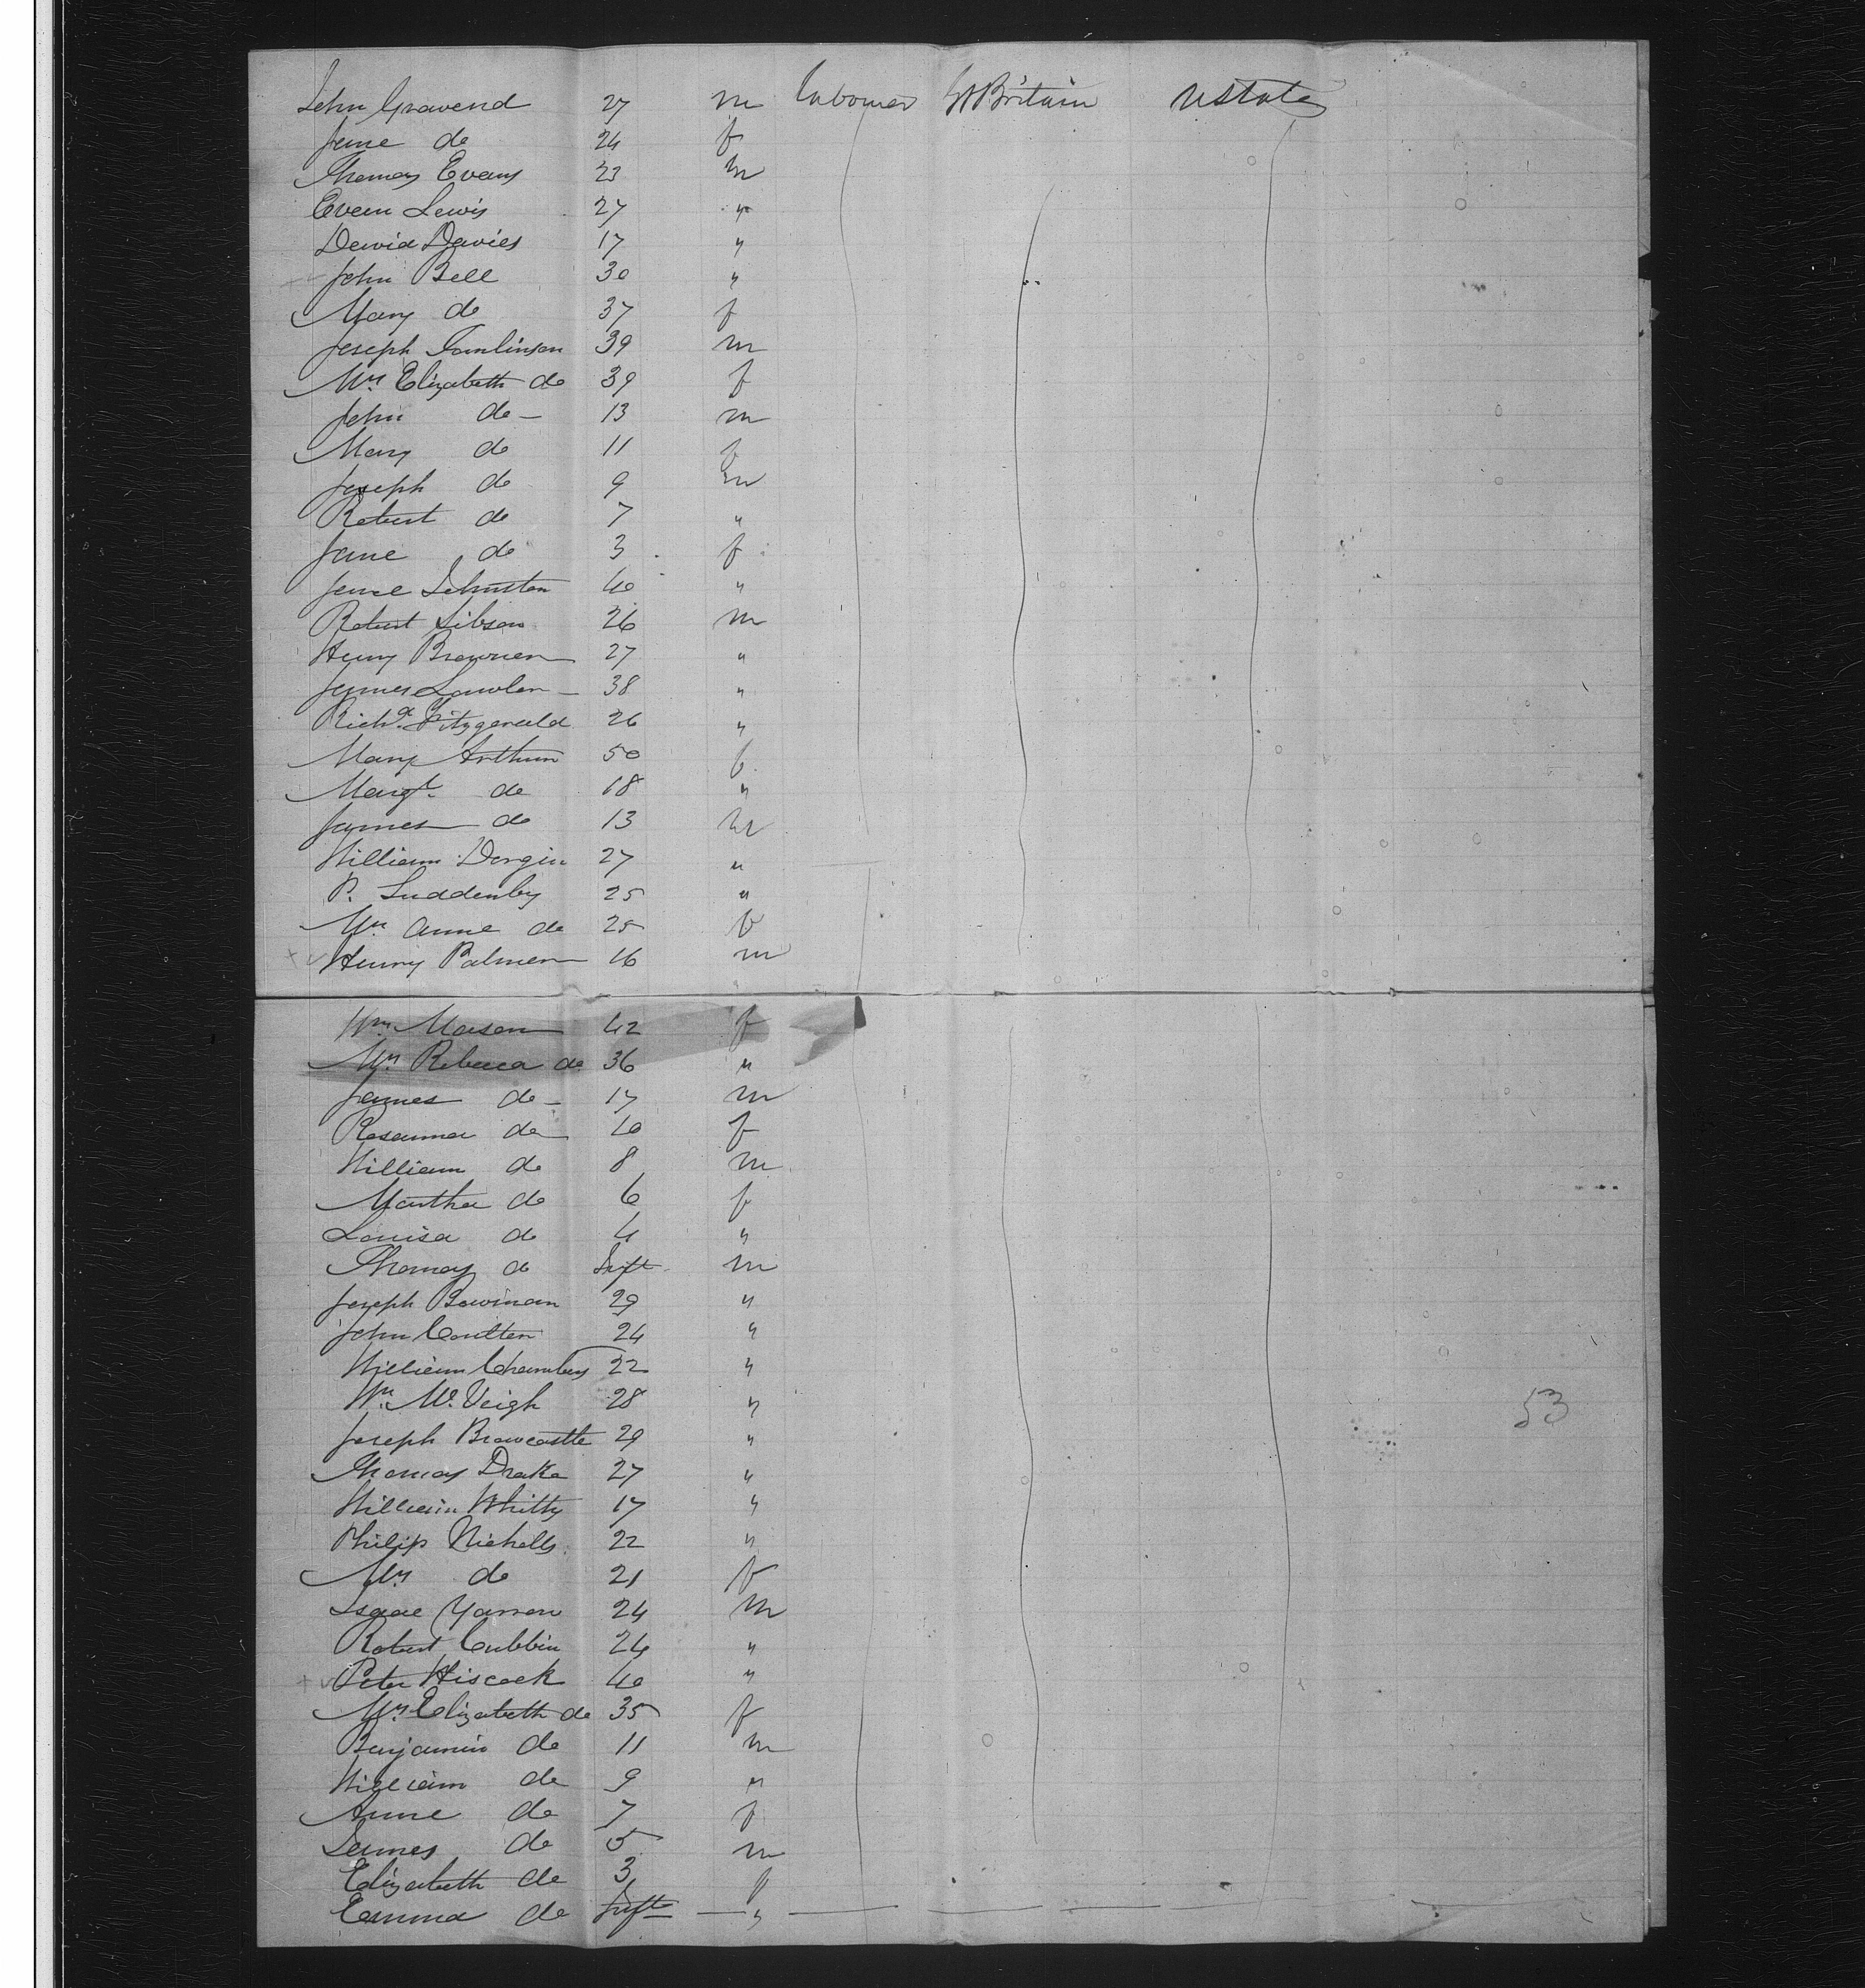 John Gravend 27 m labourer Gt Britain U States
Jane do 24 f
Thomas Evans 23 m
Evan Lewis 27 "
David Davies 17 "
John Bell 30 "
Mary do 37 f
Joseph Tomlinson 39 m
Mrs Elizabeth do 39 f
John do - 13 m
Mary do 11 f
Joseph do 9 m
Robert do 7 "
Jane do 3 f
Jane Johnston 40 "
Robert Sibson 26 m
Henry Brawner 27 "
James Lawlor 38 "
Richd Fitzgerald 26 "
Mary Arthur 50 f
Margt do 18 "
James do 13 m
William Dorgin 27 "
P. Suddenby 25 "
Mrs Anne do 25 f
Henry Palmer 16 m
Wm Mason 42 f
Mrs Rebecca do 36 "
James do - 17 m
Rosanna do 10 f
William do 8 m
Martha do 6 f
Louisa do 4 "
Thomas do Inft m
Joseph Bowman 29 "
John Coulter 24 "
William Chambers 22 "
Wm McVeigh 28 "
53
Joseph Brawcastle 29 "
Thomas Drake 27 "
William Whitty 17 "
Philip Nicholls 22 "
Mrs do 21 f
Isaac Yarrow 24 m
Robert Cubbin 24 "
Peter Hiscock 40 "
Mrs Elizabeth do 35 f
Benjamin do 11 m
William do 9 "
Anne do 7 f
James do 5 m
Elizabeth do 3 f
Emma do Inft "